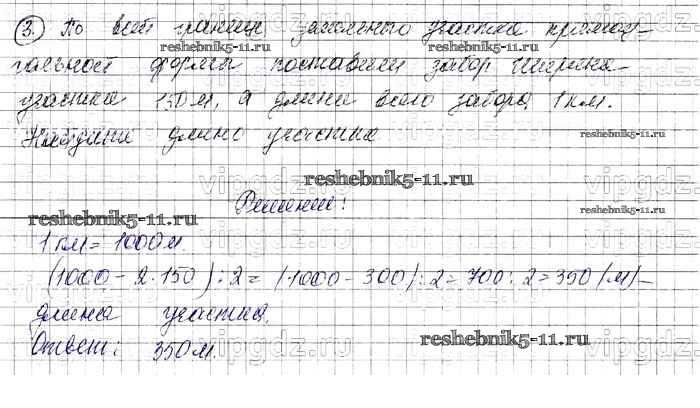 3. По всей границе земельного участка прямоу-
гольной формы поставили забор Ширина
участка 150 м, а длина всего забора 1 км.
Найдите длину участка
Решение:
1 км = 1000 м.
(1000 - 2·150) : 2 = (1000 - 300) : 2 = 700 : 2 = 350 (м) -
длина участка.
Ответ: 350 м.
reshebnik5-11.ru
reshebnik5-11.ru
reshebnik5-11.ru
reshebnik5-11.ru
reshebnik5-11.ru
reshebnik5-11.ru
vipgdz.ru
vipgdz.ru
vipgdz.ru